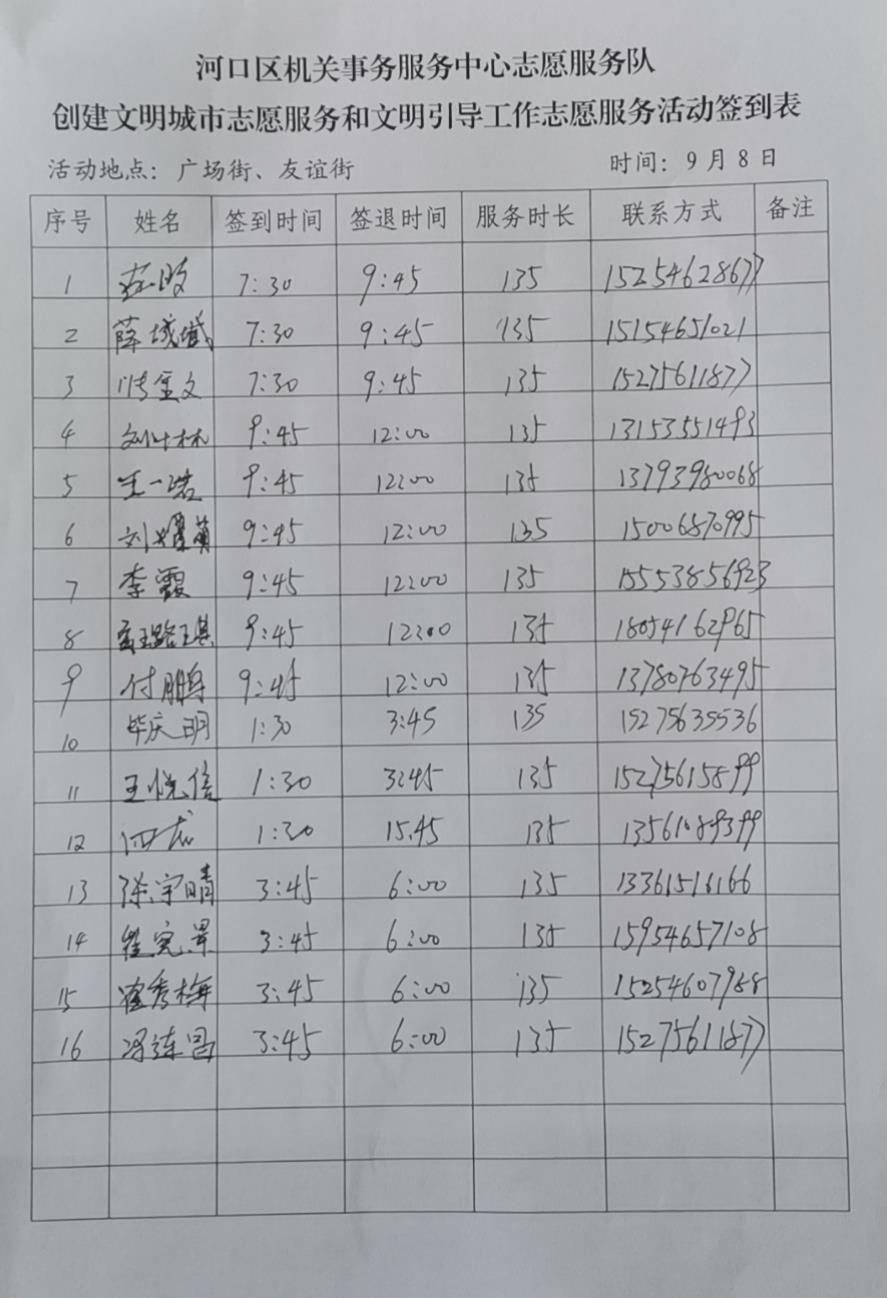 河口区机关事务服务中心志愿服务队
创建文明城市志愿服务和文明引导工作志愿服务活动签到表
活动地点：广场街、友谊街 时间：9月8日
序号 姓名 签到时间 签退时间 服务时长 联系方式 备注
1 7:30 9:45 135 15254628677
2 薛城城 7:30 9:45 135 15154651021
3 7:30 9:45 135 15275611877
4 刘叶林 9:45 12:00 135 13153551493
5 王一诺 9:45 12:00 135 13793980068
6 刘耀萱 9:45 12:00 135 15006870995
7 李霞 9:45 12:00 135 15553856923
8 9:45 12:00 135 18054162965
9 付鹏 9:45 12:00 135 13780763495
10 毕庆明 1:30 3:45 135 15275635536
11 王悦信 1:30 3:45 135 15275615899
12 1:30 15.45 135 13561089399
13 张宇晴 3:45 6:00 135 13361516166
14 3:45 6:00 135 15954657108
15 崔秀梅 3:45 6:00 135 15254607988
16 冯连昌 3:45 6:00 135 15275611877